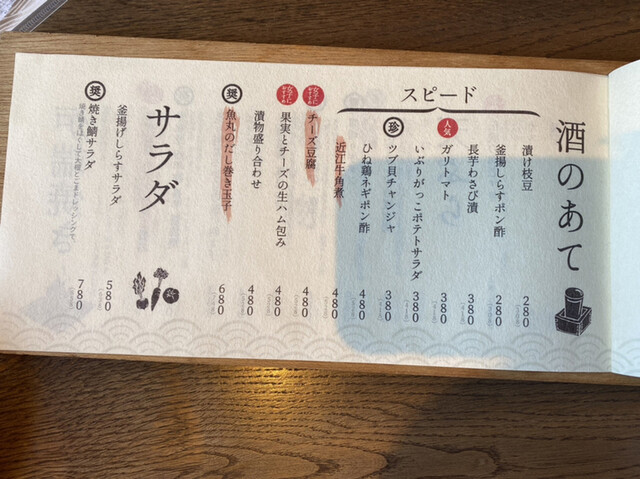 酒のあて
スピード
漬け枝豆 280
釜揚しらすポン酢 280
長芋わさび漬 380
人気 ガリトマト 380
いぶりがっこポテトサラダ 380
珍 ツブ貝チャンジャ 380
ひね鶏ネギポン酢 480
近江牛角煮 480
女子におすすめ チーズ豆腐 480
女子におすすめ 果実とチーズの生ハム包み 480
漬物盛り合わせ 480
奨 魚丸のだし巻き玉子 680
サラダ
釜揚げしらすサラダ 580
奨 焼き鯖サラダ 780